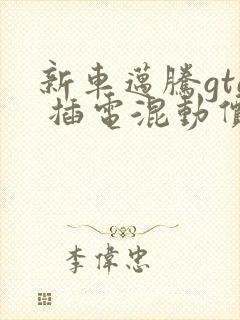 新車邁騰gte
插電混動價
李偉忠